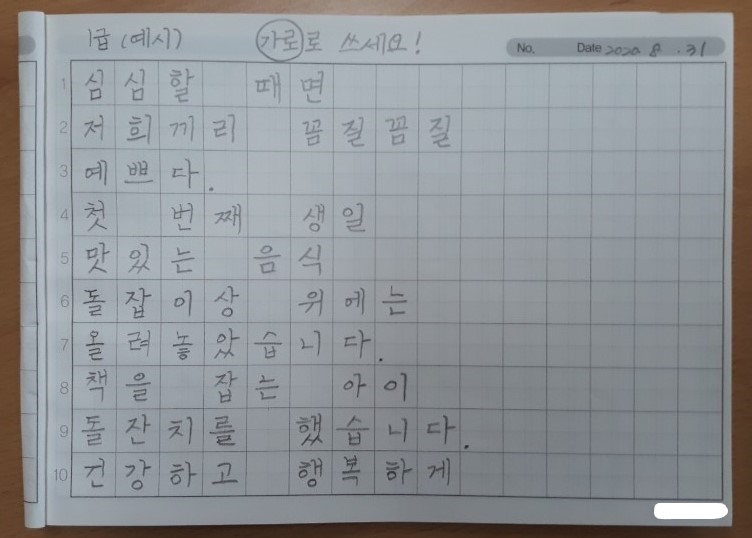 1급 (예시) 가로로 쓰세요! No. Date 2020 8 .31
1 심심할 때면
2 저희끼리 꼼질꼼질
3 예쁘다.
4 첫 번째 생일
5 맛있는 음식
6 돌잡이상 위에는
7 올려놓았습니다.
8 책을 잡는 아이
9 돌잔치를 했습니다.
10 건강하고 행복하게